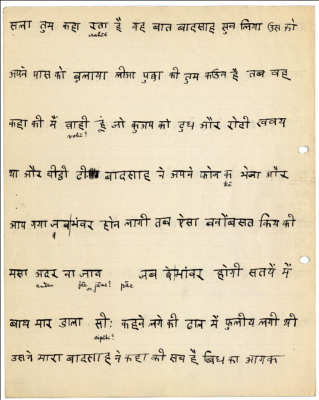 सला तुम कहा रता है यह बात बादसाह सुन लिया उस को
rahtē
अपने पास को बुलाया लीया पुछा की तुम कउन है तब वह
कहा की मैं वाही हूं जो कुत्रप को दुध और रोटी खवय
vahī?
था और वीही दी बादसाह ने अपने फोज क भेजा और
kē
आप गया होन लागी तब ऐसा बनोंबसत किय की
मछा अदर ना जाय जब होगी सतयें में
andar jāē or jānē?
बाघ मार डाला सी: कहने लगे की ढान में फुलीय लगी थी
sipāhī?
उसने मारा बादसाह ने कहा की सच है बिध का आगक